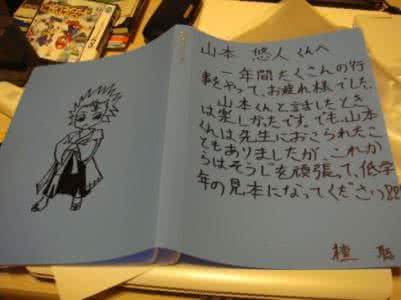 山本 悠人くんへ
一年間たくさんの行
事をやって、お疲れ様でした。
山本くんと話ましたとき
は楽しかったです。でも、山本
くんは先生におこられたこ
ともありましたが、これか
らはそうじを頑張って、低学
年の見本になってください